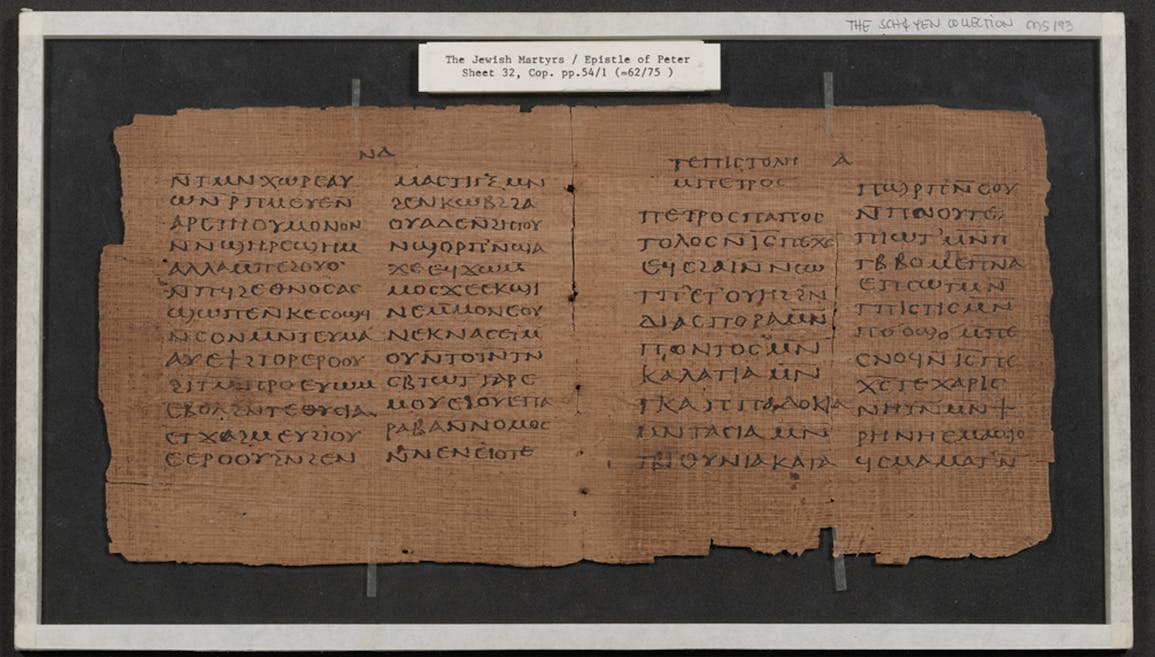 THE SCHØYEN COLLECTION MS 193
The Jewish Martyrs / Epistle of Peter
Sheet 32, Cop. pp.54/1 (=62/75 )
ⲛⲇ
ⲛ̄ⲧⲙⲛⲭⲱⲣⲉⲁⲩ
ⲱⲛⲣ̄ⲡⲙⲉⲩⲉⲛ
ⲁⲣⲉⲧⲏⲟⲩⲙⲟⲛⲟⲛ
ⲛⲛϣⲏⲣⲉϣⲏⲙ
ⲁⲗⲗⲁⲙⲡⲉϩⲟⲩⲟ
ⲙⲡϥϩⲉⲑⲛⲟⲥⲁⲥ
ϣⲱⲡⲉⲛⲕⲉⲥⲟϣϥ
ⲛ̄ⲥⲟⲛⲙⲛⲧⲉⲩⲙⲁ
ⲁⲩⲉϯϩⲧⲟⲣⲉⲣⲟⲟⲩ
ϩⲓⲧⲙⲡⲣⲟⲉⲩⲱⲙ
ⲉⲃⲟⲗϩⲛⲧⲉⲑⲩⲥⲓⲁ
ⲉⲧϫⲁϩⲙⲉⲩϩⲓⲟⲩ
ⲉⲉⲣⲟⲟⲩϩⲛ̄ϩⲉⲛ
ⲙⲁⲥⲧⲓⲅⲝⲙⲛ
ϩⲉⲛⲕⲱⲃϩϩⲁ
ⲟⲩⲁⲇⲉⲛ̄ϩⲏⲧⲟⲩ
ⲛϣⲟⲣⲡ̄ⲛϣⲁ
ϫⲉⲉϥϫⲱⲙ
ⲙⲟⲥϫⲉⲉⲕϣⲓ
ⲛⲉⲙ̄ⲙⲟⲛⲉⲟⲩ
ⲛⲉⲕⲛⲁⲥⲉⲧⲙ
ⲟⲩⲛ̄ⲧⲟⲓⲛⲧⲛ
ⲥⲃⲧⲱⲧⲅⲁⲣⲉ
ⲙⲟⲩⲉϩⲟⲩⲉⲡⲁ
ⲣⲁⲃⲁⲛⲛⲟⲙⲟⲥ
ⲛ̄ⲛⲉⲛⲉⲓⲟⲧⲉ
ⲧⲉⲡⲓⲥⲧⲟⲗⲏ
ⲙⲡⲉⲧⲣⲟⲥ
ⲁ
ⲡⲉⲧⲣⲟⲥⲡⲁⲡⲟⲥ
ⲧⲟⲗⲟⲥⲛ̄ⲓ̄ⲥ̄ⲡⲉⲭ̄ⲥ̄
ⲉϥⲥϩⲁⲓⲛ̄ⲛⲥⲱ
ⲧⲡⲉⲧⲟⲩⲏϩϩⲛ̄
ⲇⲓⲁⲥⲡⲟⲣⲁⲙⲛ
ⲡⲡⲟⲛⲧⲟⲥⲙⲛ̄
ⲕⲁⲗⲁⲧⲓⲁⲙⲛ
ⲧⲕⲁⲡⲡⲁⲇⲟⲕⲓⲁ
ⲙⲛⲧⲁⲥⲓⲁⲙⲛ
ⲧⲃⲓⲑⲩⲛⲓⲁⲕⲁⲧⲁ
ⲡϣⲣⲡⲛ̄ⲥⲟⲩ
ⲛ̄ⲡⲛⲟⲩⲧⲉ
ⲡⲓⲱⲧⲙⲛ̄ⲡ
ⲧⲃⲃⲟⲙⲡⲉⲡ̄ⲛ̄ⲁ̄
ⲉⲡⲥⲱⲧⲙⲛ
ⲧⲡⲓⲥⲧⲓⲥⲙⲛ
ⲡϭⲟϣϭϣⲙⲡⲉ
ⲥⲛⲟϥⲛ̄ⲓ̄ⲥ̄ⲡⲉ
ⲭ̄ⲥ̄ⲧⲉⲭⲁⲣⲓⲥ
ⲛⲏⲧⲛ̄ⲙⲛϯ
ⲣⲏⲛⲏⲉⲙⲁϣⲟ
ϥⲥⲙⲁⲙⲁⲁⲧⲛ